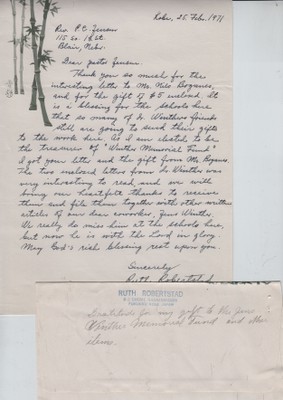 Kobe, 25 Feb. 1971
Rev. P.C. Jensen
115 So. 18 St.
Blair, Nebr.
Dear pastor Jensen.
Thank you so much for the
interesting letter to Mr. Nico Bogaues,
and for the gift of $5 inclosed. It
is a blessing for the schools here
that so many of Dr. Winthers friends
still are going to send their gifts
to the work here. As I am elected to be
the treasurer of "Winther Memorial Fund"
I got your letter and the gift from Mr. Bogaues.
The two inclosed letters from Dr. Winther was
very interesting to read, and we will
bring our heartfelt thanks to receive
them and file them together with other written
articles of our dear coworker, Jens Winther.
We really do miss him at the schools here,
but now he is with the Lord in glory.
May God's rich blessing rest upon you.
Sincerely
Ruth Robertstad
RUTH ROBERTSTAD
Gratitude for my gift to the Jens
Winther Memorial Fund and other
items.